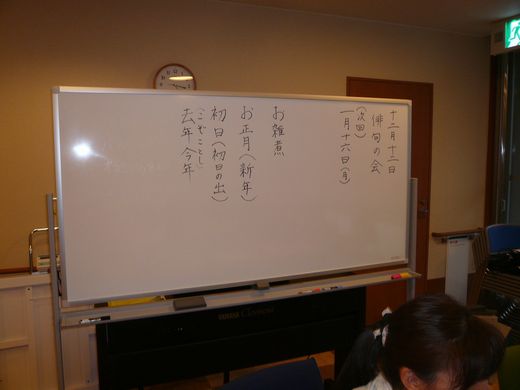 十二月十二日
俳句の会
(次回)
一月十六日(月)
お雑煮
お正月(新年)
初日(初日の出)
(こぞことし)
去年今年